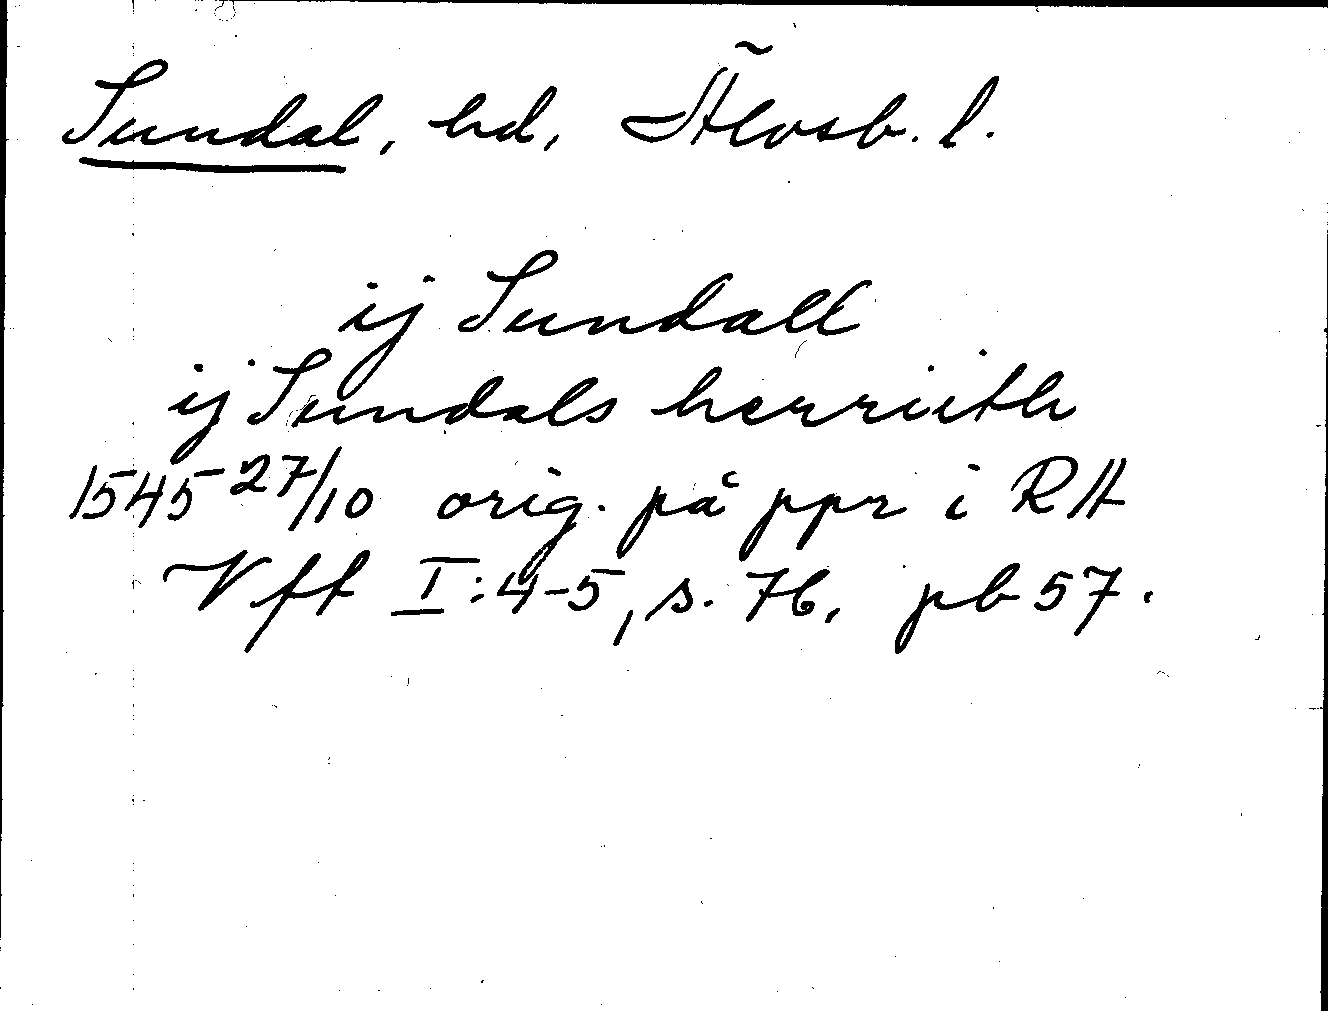 Sundal, hd, Älvsb. l.
ij Sundall
ij Sundals herriith
1545 27/10 orig. på ppr i RA
Vff I:4-5, s. 76, pb 57.